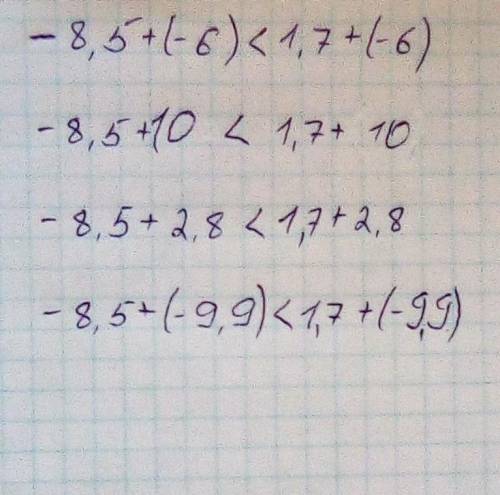 - 8,5+(-6) < 1,7+(-6)
- 8,5+10 < 1,7+ 10
- 8,5+ 2,8 < 1,7+2,8
- 8,5+(-9,9) < 1,7+(-9,9)